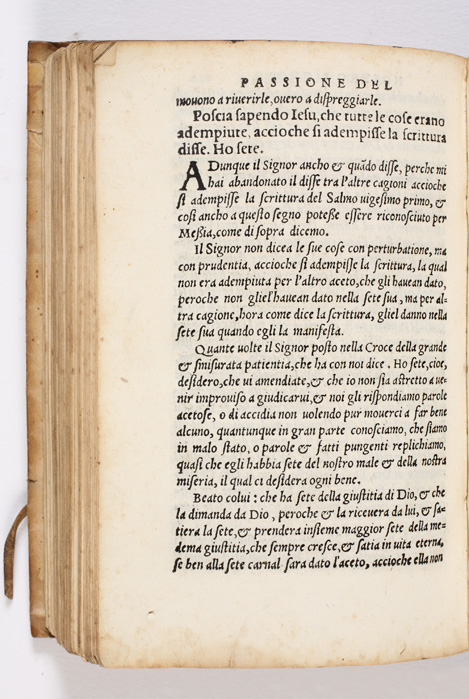 PASSIONE DEL
mouono a riuerirle, ouero a dispreggiarle.
Poscia sapendo Iesu, che tutte le cose erano
adempiute, accioche si adempisse la scrittura
disse. Ho sete.
ADunque il Signor ancho & quãdo disse, perche mi
hai abandonato il disse tra l'altre cagioni accioche
si adempisse la scrittura del Salmo uigesimo primo, &
cosi ancho a questo segno potesse essere riconosciuto per
Messia, come di sopra dicemo.
Il Signor non dicea le sue cose con perturbatione, ma
con prudentia, accioche si adempisse la scrittura, la qual
non era adempiuta per l'altro aceto, che gli hauean dato,
peroche non gliel'haueandato nella sete sua, ma per al-
tra cagione, hora come dice la scrittura, gliel danno nella
sete sua quando egli la manifesta.
Quante uolte il Signor posto nella Croce della grande
& smisurata patientia, che ha con noi dice. Ho sete, cioe,
desidero, che ui amendiate, & che io non sia astretto a ue-
nir improuiso a giudicarui, & noi gli rispondiamo parole
acetose, o di accidia non uolendo pur mouerci a far bene
alcuno, quantunque in gran parte conosciamo, che siamo
in malo stato, o parole & fatti pungenti replichiamo,
quasi che egli habbia sete del nostro male & della nostra
miseria, il qual ci desidera ogni bene.
Beato colui: che ha sete della giustitia di Dio, & che
la dimanda da Dio, peroche & la riceuera da lui, & sa-
tiera la sete, & prendera insieme maggior sete della me-
dema giustitia, che sempre cresce, & satia in uita eterna,
se ben alla sete carnal sara dato l'aceto, accioche ella non